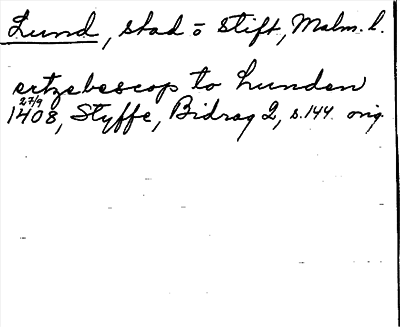 Lund, stad o stift, Malm. l.
ertzebescop to Lunden
27/9
1408, Styffe, Bidrag 2, s. 144. orig.